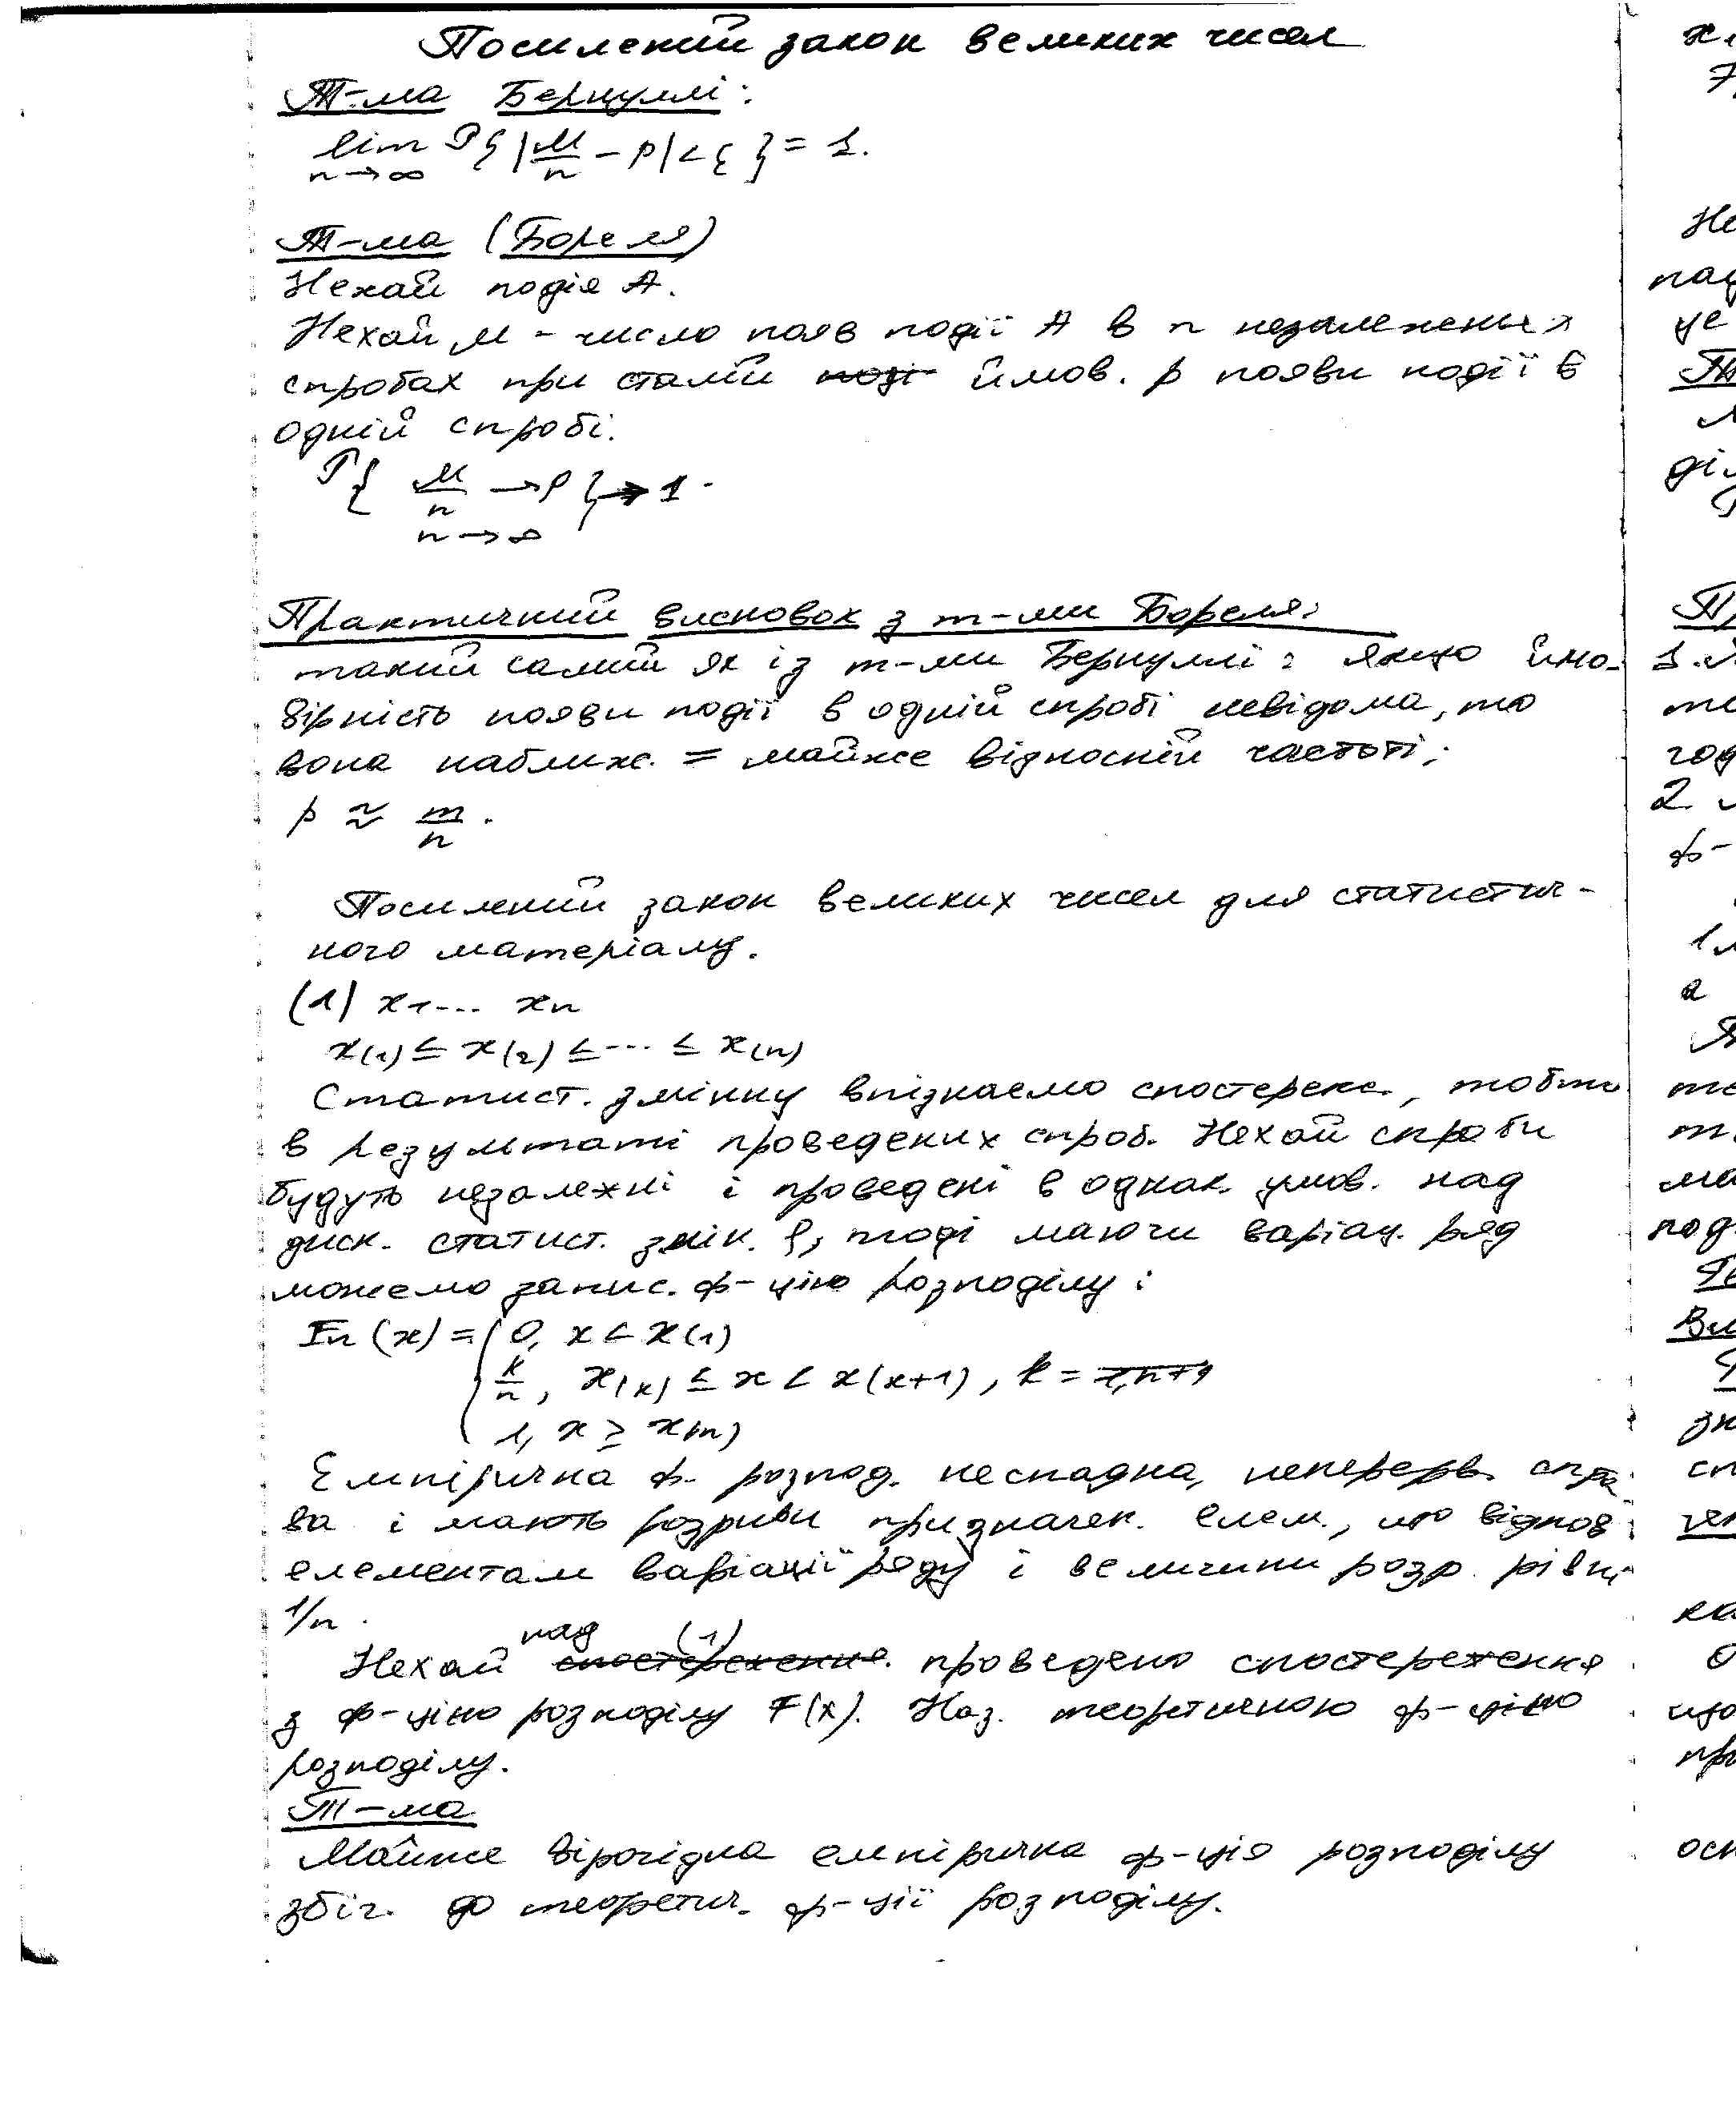 Посилений закон великих чисел
Т-ма Бернуллі:
lim P{|μ/n - p| < ξ} = 1.
n→∞
Т-ма (Бореля)
Нехай подія A.
Нехай μ - число появ події A в n незалежних
спробах при сталій ймов. p появи події в
одній спробі.
P{ μ/n → p } → 1.
n→∞
Практичний висновок з т-ми Бореля:
такий самий як із т-ми Бернуллі: якщо ймо-
вірність появи події в одній спробі невідома, то
вона наближ. = майже відносній частоті;
p ≈ m/n.
Посилений закон великих чисел для статистич-
ного матеріалу.
(1) x1... xn
x(1) ≤ x(2) ≤ ... ≤ x(n)
Статист. змінну впізнаємо спостереж., тобто
в результаті проведених спроб. Нехай спроби
будуть незалежні і проведені в однак. умов. над
диск. статист. змін. ξ, тоді маючи варіац. ряд
можемо запис. ф-цію розподілу:
Fn(x) = { 0, x < x(1)
k/n, x(k) ≤ x < x(k+1), k = 1,n+1
1, x ≥ x(n)
Емпірична ф. розпод. неспадна, неперерв. спра
ва і мають розриви призначен. елем., що віднов
елементам варіації ряду і величини розр. рівні
1/n.
над (1)
Нехай проведено спостереження
з ф-цією розподілу F(x). Наз. теоретичною ф-цією
розподілу.
Т-ма
Майже вірогідна емпірична ф-ція розподілу
збіг. до теоретич. ф-ції розподілу.